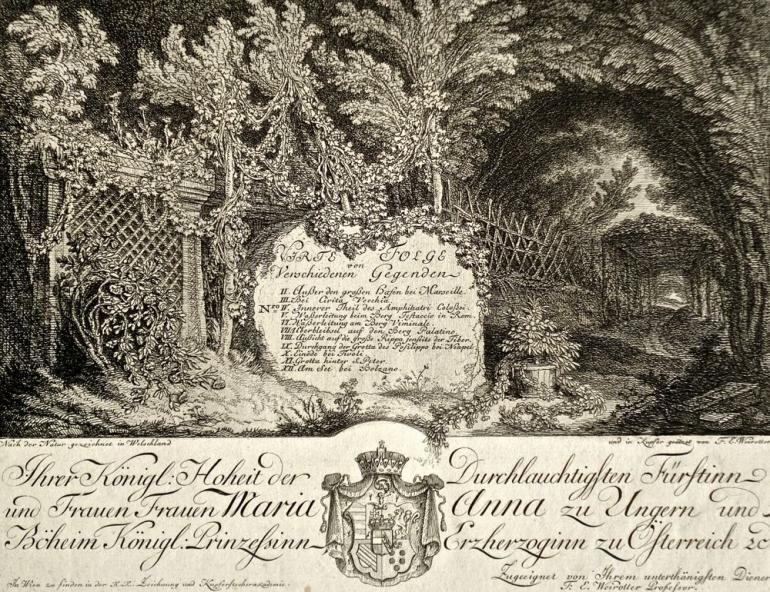 VIRTE FOLGE
von
Verschiedenen Gegenden
II. Auſser den großen Hafen bei Marseille.
III. Bei Civita Vecchia.
Nro IV. Innerer Theil des Amphitatri Coloſsei.
V. Waſserleitung beim Berg Testaccio in Rom.
VI. Waſserleitung am Berg Viminale.
VII. Uberbleibsel auf den Berg Palatino.
VIII. Auſsicht auf die große Rippa jenseits der Tiber.
IX. Durchgang der Grotta des Poſilippo bei Neapel.
X. Einöde bei Tivoli
XI. Grotta hinter S. Peter.
XII. Am See bei Bolzano.
Nach der Natur gezeichnet in Welschland
und in Kupfer geätzet von F. E. Weirotter
Ihrer Königl: Hoheit der Durchlauchtigſten Fürstinn
und Frauen Frauen Maria Anna zu Ungern und
Böheim Königl: Prinzeſsinn Erzherzoginn zu Öſterreich ꝛc
Zugeeignet von Ihrem unterthänigſten Diener
F. E. Weirotter Profeſsor.
In Wien zu finden in der K. K. Zeichnung und Kupferstecherakademie.